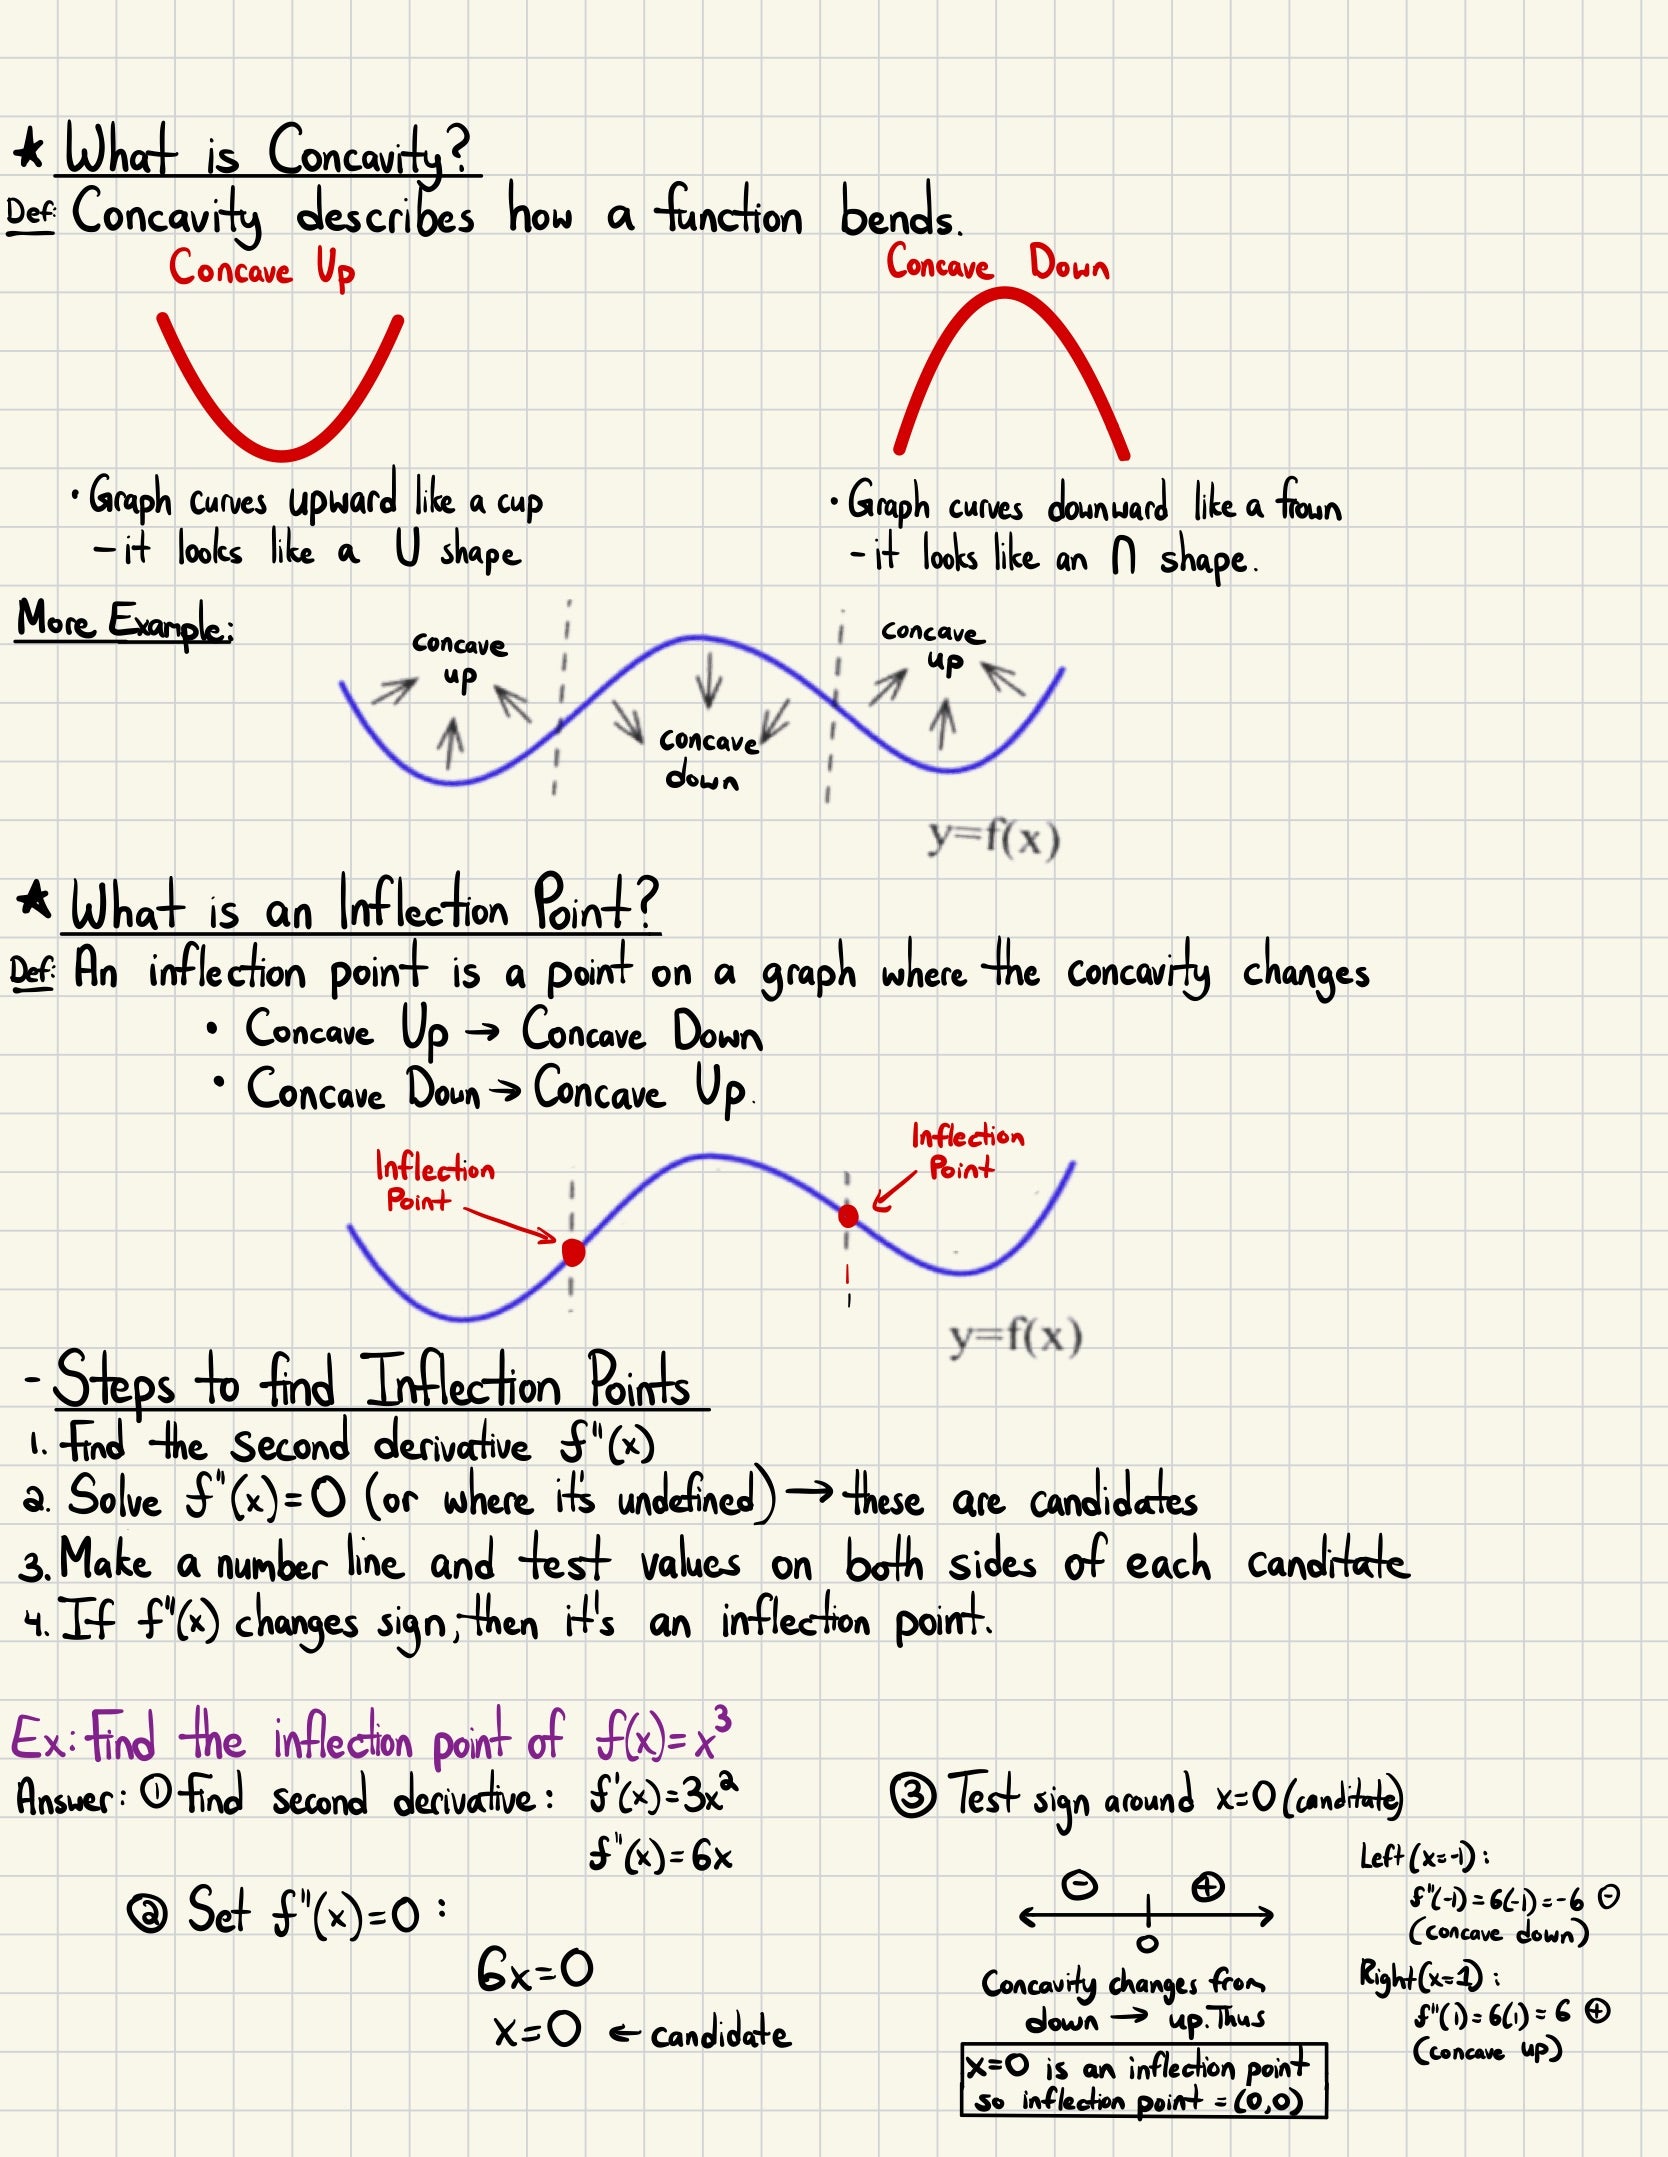 ★ What is Concavity?
Def: Concavity describes how a function bends.
Concave Up
Concave Down
• Graph curves upward like a cup
- it looks like a U shape
• Graph curves downward like a frown
- it looks like an ∩ shape.
More Example:
concave
up
concave
down
concave
up
y=f(x)
★ What is an Inflection Point?
Def: An inflection point is a point on a graph where the concavity changes
• Concave Up → Concave Down
• Concave Down → Concave Up.
Inflection
Point
Inflection
Point
y=f(x)
- Steps to find Inflection Points
1. Find the second derivative f"(x)
2. Solve f"(x)=0 (or where it's undefined) → these are candidates
3. Make a number line and test values on both sides of each canditate
4. If f"(x) changes sign, then it's an inflection point.
Ex: Find the inflection point of f(x)=x³
Answer: ① find second derivative: f'(x)=3x²
f"(x)=6x
② Set f"(x)=0:
6x=0
x=0 ← candidate
③ Test sign around x=0 (canditate)
⊖ ⊕
0
Concavity changes from
down → up. Thus
x=0 is an inflection point
so inflection point = (0,0)
Left (x=-1):
f"(-1)=6(-1)=-6 ⊖
(concave down)
Right (x=1):
f"(1)=6(1)=6 ⊕
(concave up)